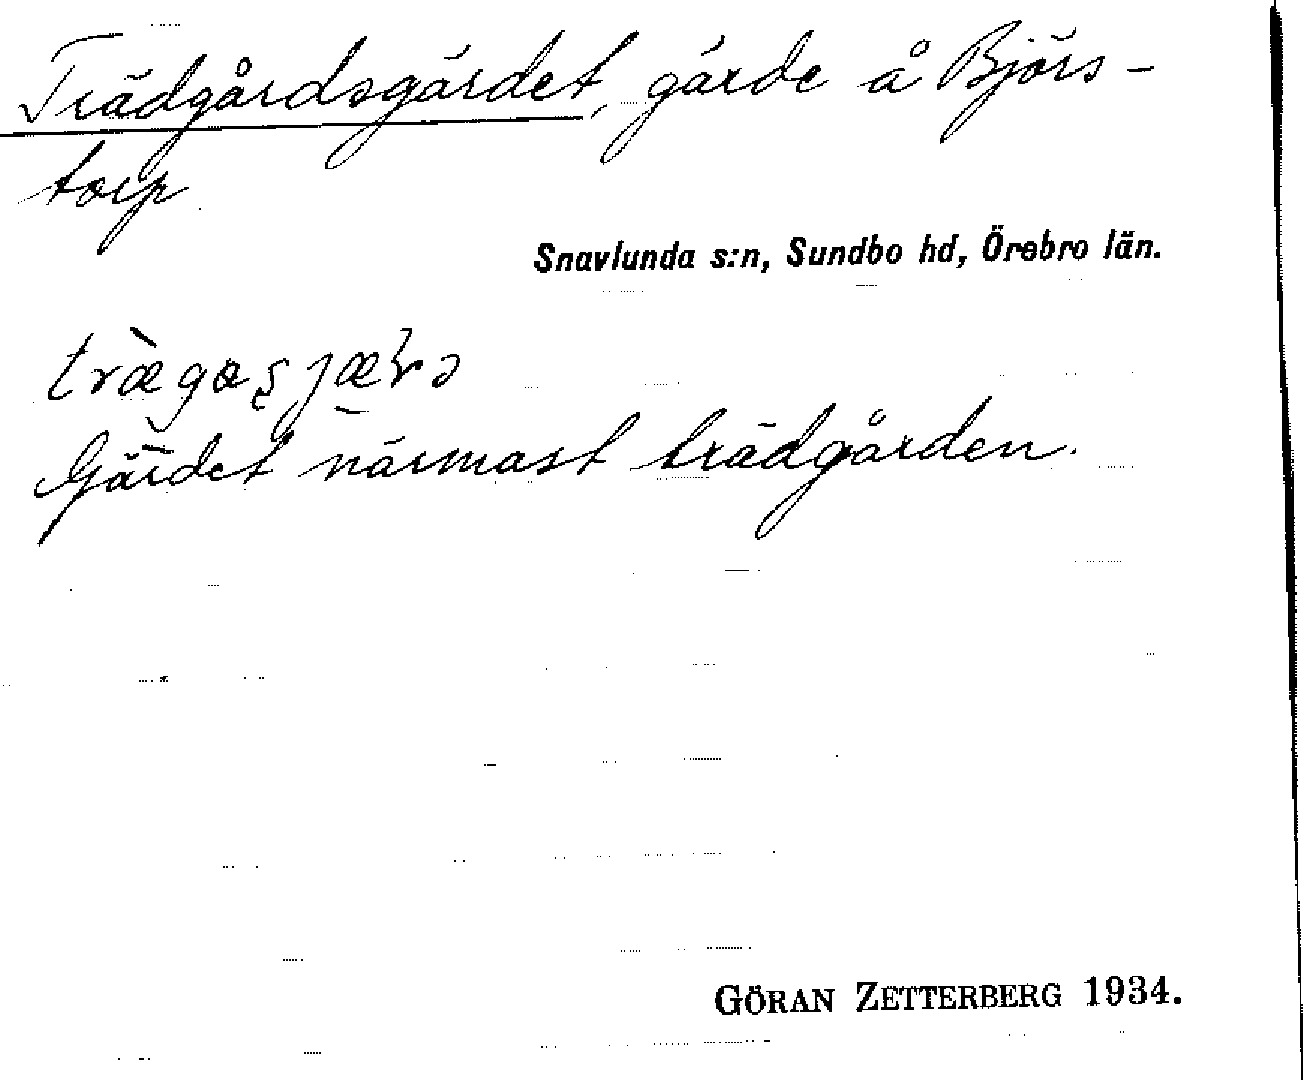 Trädgårdsgärdet, gärde å Björs-
torp
Snavlunda s:n, Sundbo hd, Örebro län.
Gärdet närmast trädgården.
GÖRAN ZETTERBERG 1934.